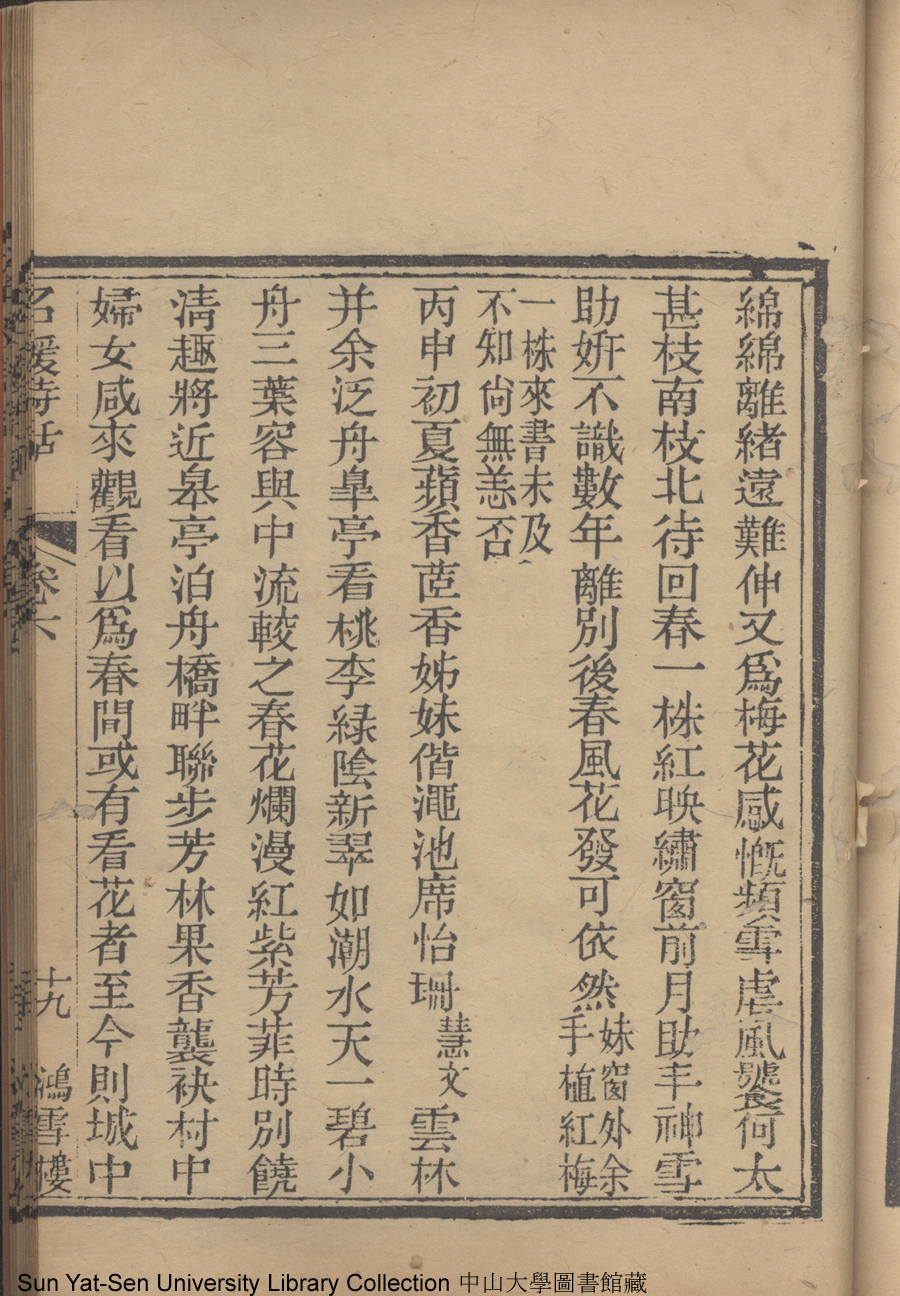 綿綿離緒遠難伸又爲梅花感慨頻雪虐風饕何太
甚枝南枝北待回春一株紅映繡窗前月助丰神雪
助姸不識數年離別後春風花發可依然妹窗外余
手植紅梅
一株來書未及
不知尙無恙否
丙申初夏蘋香茝香姊妹偕澠池席怡珊慧文雲林
并余泛舟皐亭看桃李綠陰新翠如潮水天一碧小
舟三葉容與中流較之春花爛漫紅紫芳菲時別饒
淸趣將近皋亭泊舟橋畔聯步芳林果香襲袂村中
婦女咸來觀看以爲春間或有看花者至今則城中
名媛詩話 卷六 十九 鴻雪樓
Sun Yat-Sen University Library Collection 中山大學圖書館藏